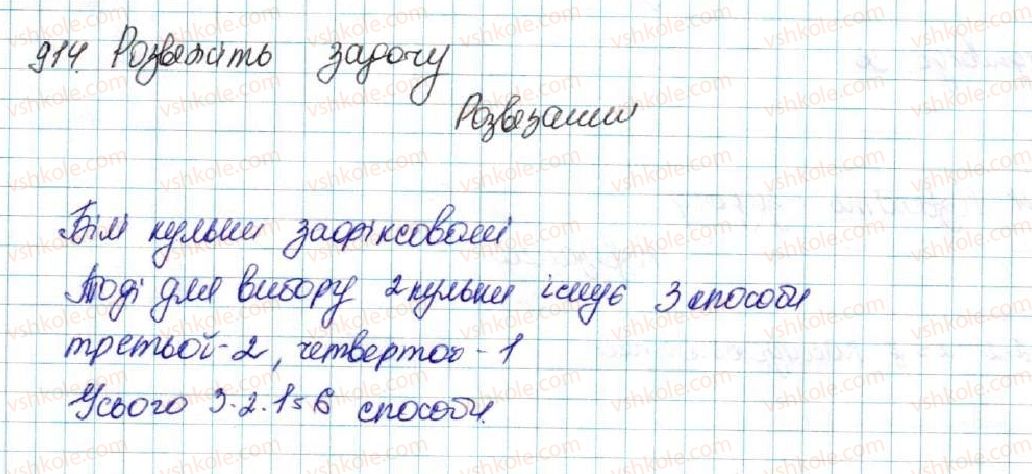 914. Розвяжить задачу
Розвязання
Білі кульки зафіксовані
Тоді для вибору 2 кульки існує 3 способи
третьой - 2, четвертої - 1
Усього 3·2·1=6 способи.